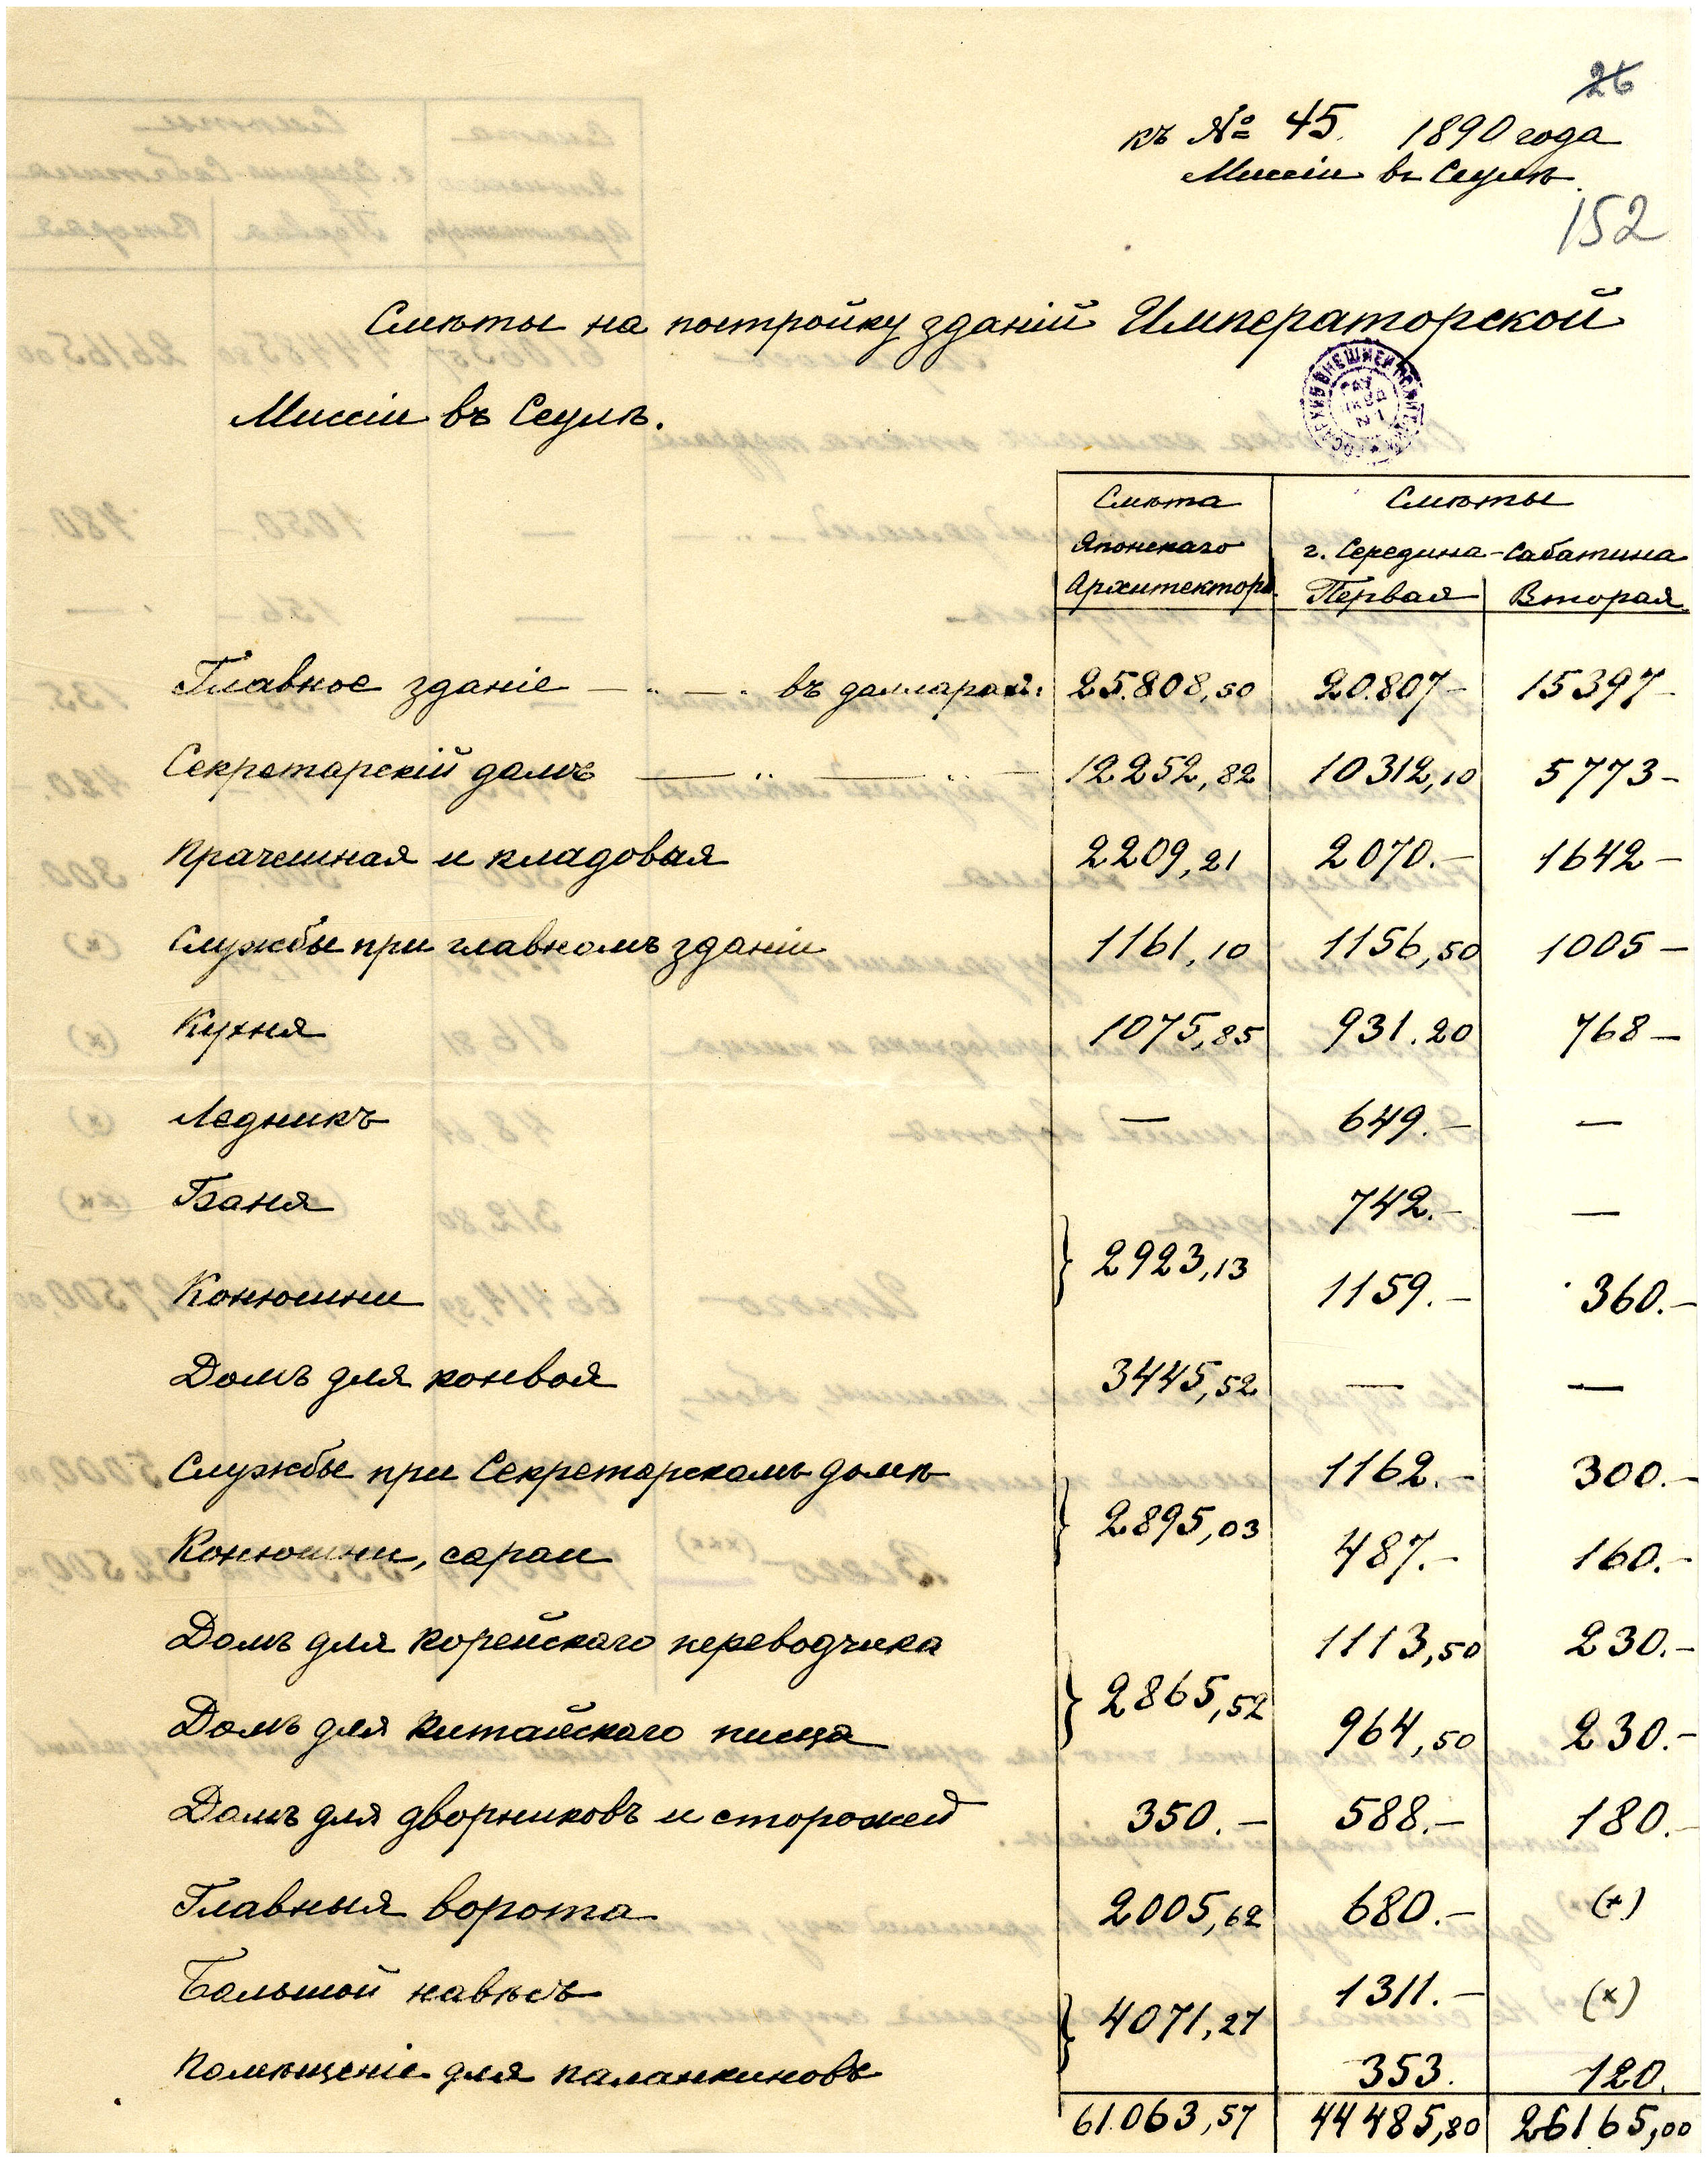 26
къ № 45. 1890 года
Миссіи въ Сеулѣ.
152
Смѣты на постройку зданій Императорской
Миссіи въ Сеулѣ.
Смѣта Смѣты
Японскаго г. Середина-Сабатина
Архитектора. Первая Вторая.
Главное зданіе — " — " въ долларахъ: 25.808,50 20.807- 15397-
Секретарскій домъ — " — " — 12252,82 10312,10 5773-
Прачешная и кладовая 2209,21 2070.- 1642-
Службы при главномъ зданіи 1161,10 1156,50 1005-
Кухня 1075,85 931.20 768-
Ледникъ — 649.- —
Баня 742.- —
} 2923,13
Конюшни 1159.- 360.-
Домъ для конвоя 3445,52 — —
Службы при Секретарскомъ домѣ 1162.- 300.-
} 2895,03
Конюшни, сараи 487.- 160.-
Домъ для Корейскаго переводчика 1113,50 230.-
} 2865,52
Домъ для Китайскаго писца 964,50 230.-
Домъ для дворниковъ и сторожей 350.- 588.- 180.-
Главныя ворота 2005,62 680.- (+)
Большой навѣсъ 1311.- (x)
} 4071,27
Помѣщеніе для паланкиновъ 353. 120.
61.063,57 44485,80 26165,00